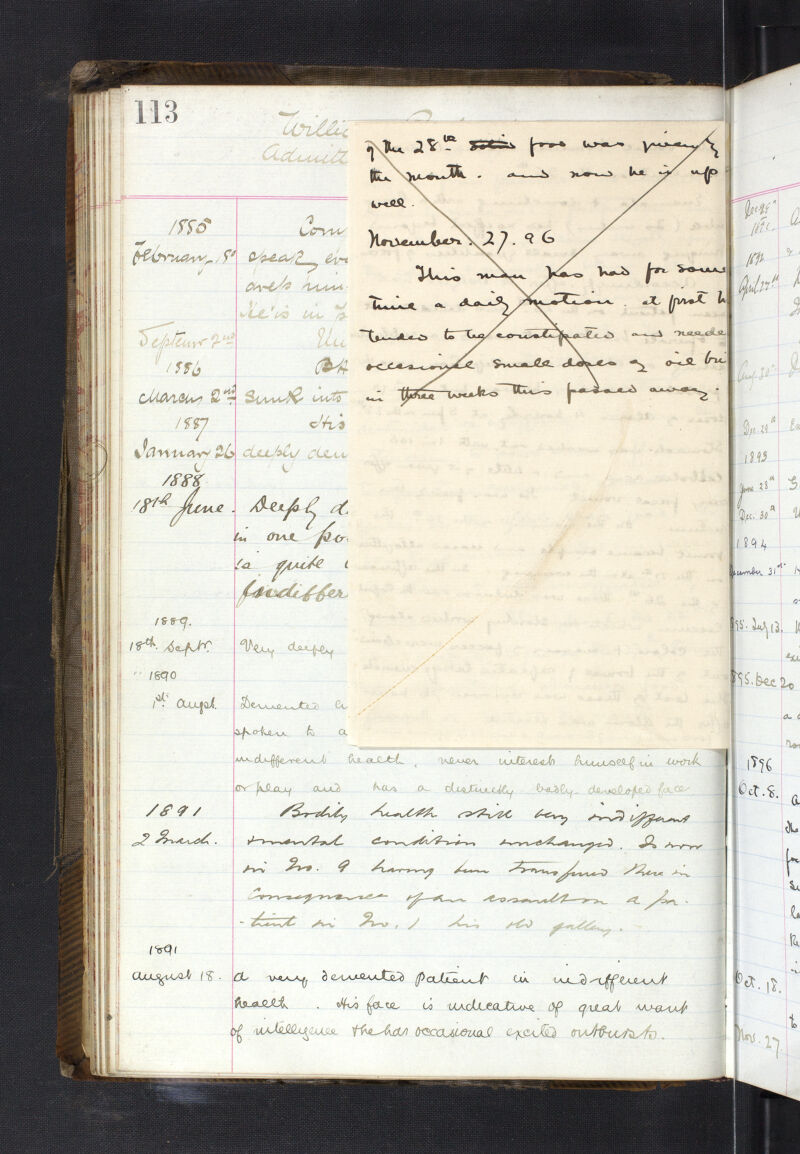 113
Willi
Admitt
of the 28th solid food was given by
the mouth. and now he is up
well.
November. 27. 96
This man has had for some
time a daily motion. at first h
tended to be constipated and neede
occasional small doses of oil bu
in three weeks this passed away.
1885 Com
February 18 speak eve
He is in
Septemr 2nd
1886
March 2nd sunk into
1887 His
January 26 deeply dem
1888
18th June. Deeply d
in one po
is quite
Indiffer
1889.
18th Septr. Very deeply
" 1890
1st Augst. Demented
spoken to a
indifferent health, never interests himself in work
or play and has a distinctly badly developed face
1891 Bodily health still very indifferent
2 March. mental condition unchanged. Is now
in No. 9 having been transferred there in
consequence of an assault on a pa-
-tient in No. 1 his old gallery.
1891
August 18. A very demented patient in indifferent
health. His face is indicative of great want
of intelligence & he has occasional excited outbursts.
1892
April 27th
Aug. 30th
Dec. 29th
1893
June 28th
Dec. 30th
1894
December 31st
895. July 13.
895. Dec 20
1896
Oct. 8.
Oct. 18.
Nov. 27